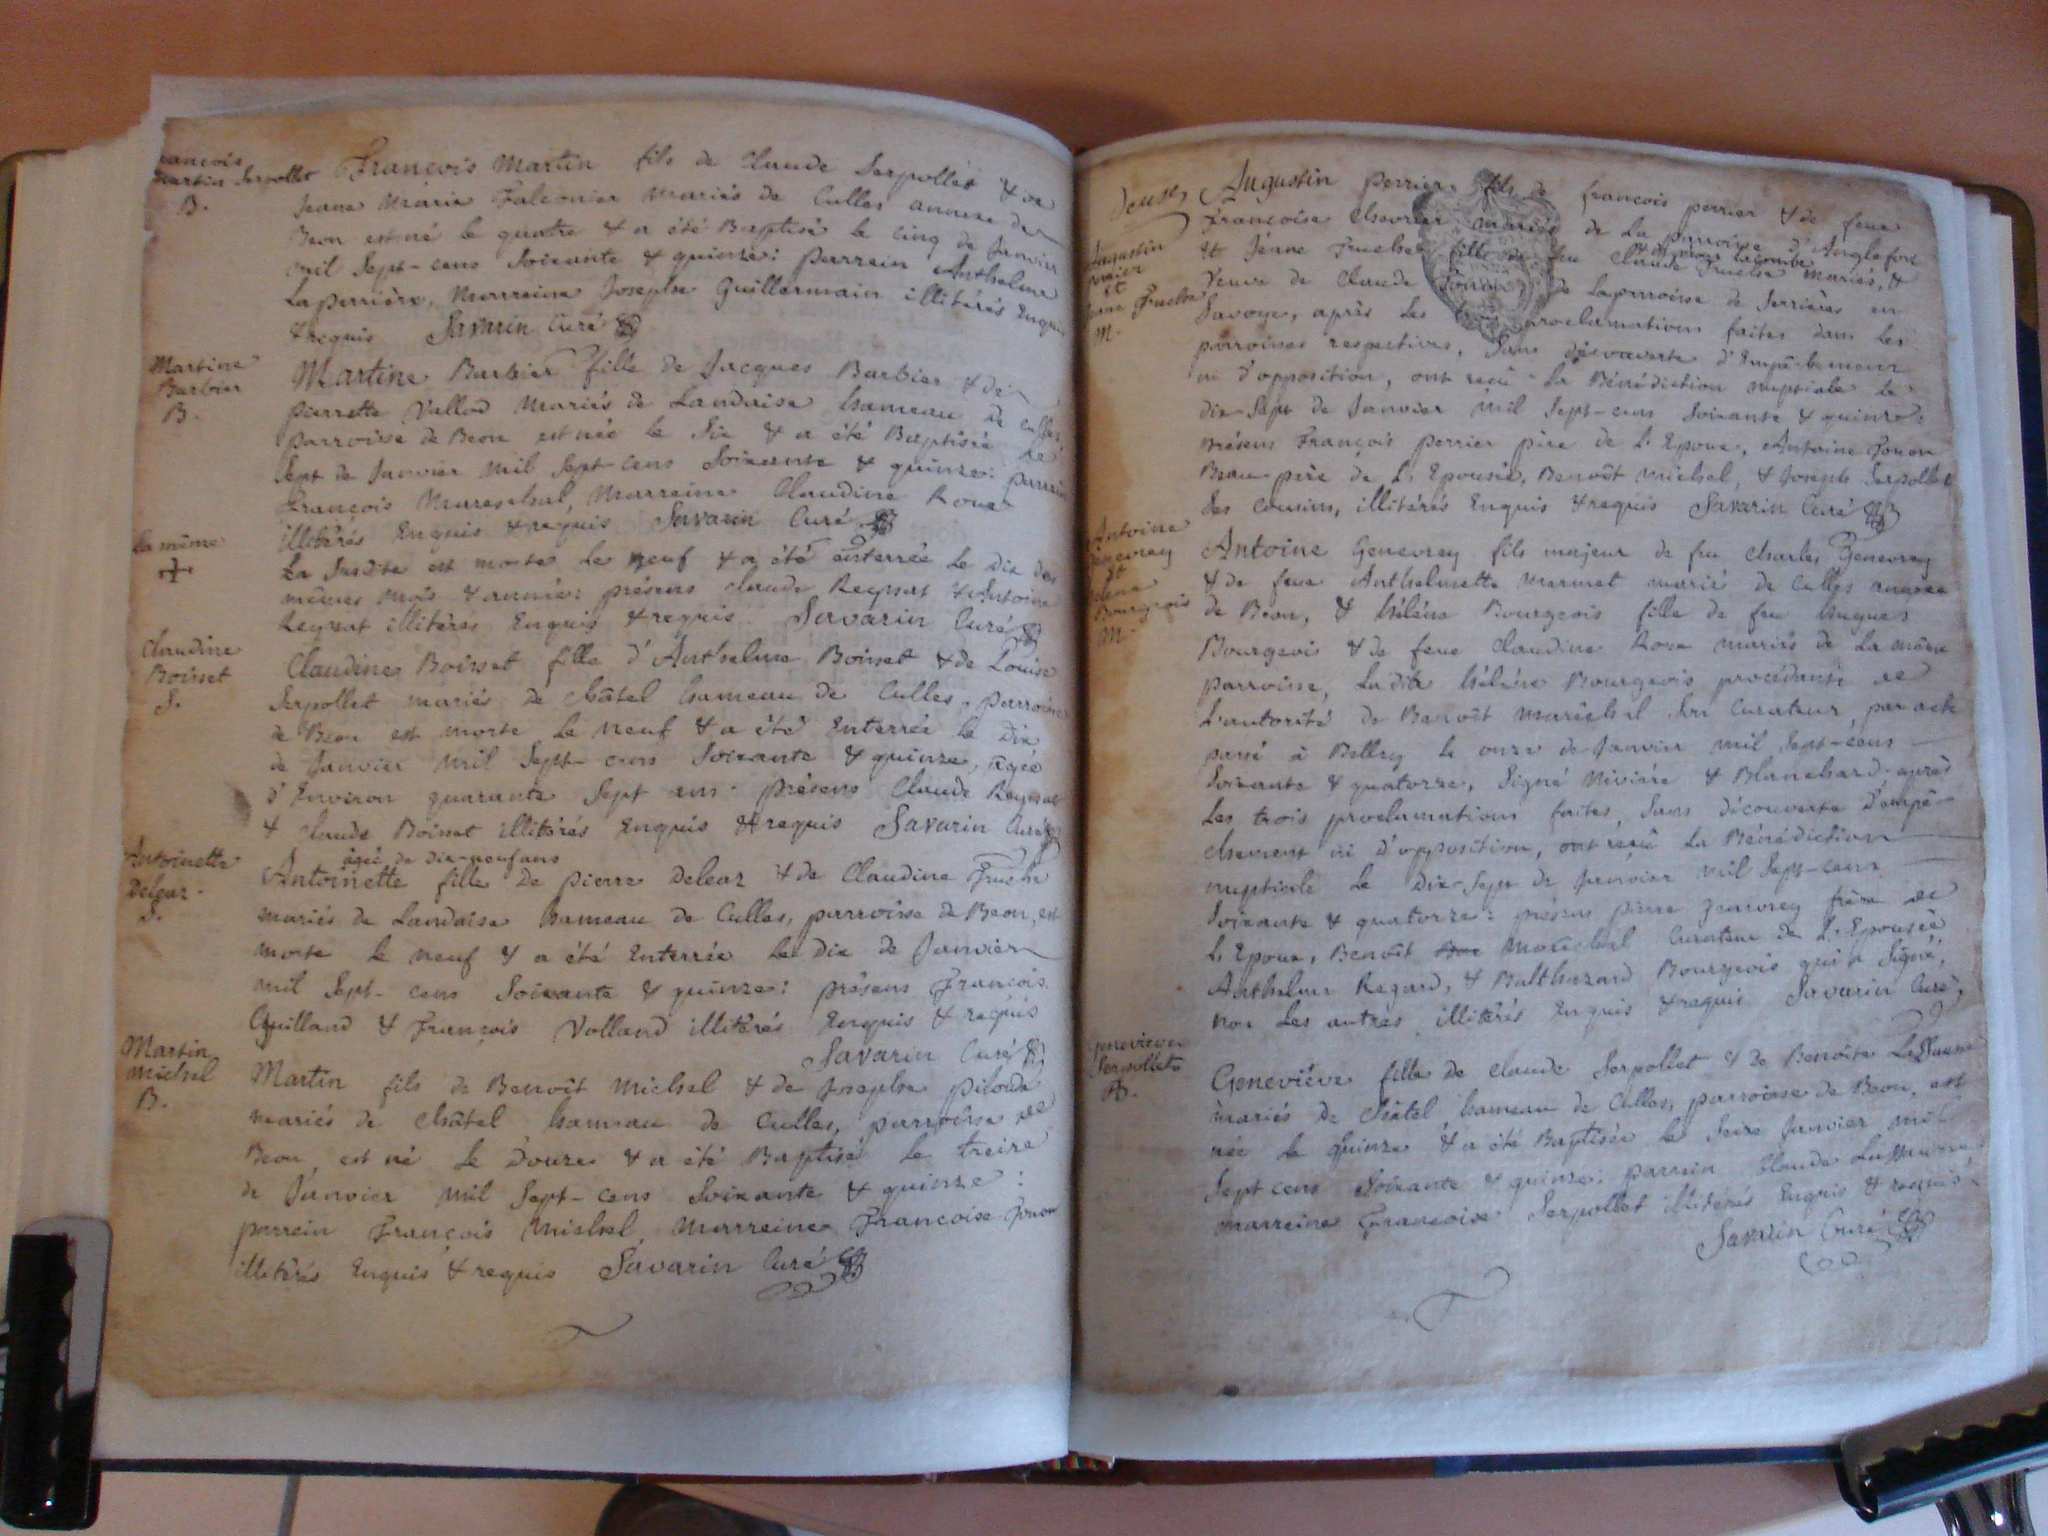 François
Martin Serpollet
B.
François Martin fils de Claude Serpollet & de
Jeane Marie Falconier mariés de Culles annexe de
Beon est né le quatre & a été Baptisé le cinq de Janvier
mil Sept-cens Soixante & quinze: parrein Anthelme
Laperrière, Marreine Josephe Guillermain illitérés Enquis
& requis Savarin Curé
Martine
Barbier
B.
Martine Barbier fille de Jacques Barbier & de
pierrette Vallod mariés de Landaise hameau de Culles,
parroisse de Beon est née le Six & a été Baptisée le
Sept de Janvier mil Sept-cens Soixante & quinze: parrein
François Mareschal, Marreine Claudine Roux
illitérés Enquis & requis Savarin Curé
La même
La Susdite est morte Le neuf & a été enterrée Le Dix des
mêmes mois & année: présens Claude Reynat & Antoine
Reynat illitérés Enquis & requis Savarin Curé
Claudine
Boisset
S.
Claudine Boisset fille d'Anthelme Boisset & de Louise
Serpollet mariés de Châtel hameau de Culles, parroisse
de Beon est morte Le neuf & a été Enterrée le Dix
de Janvier mil Sept-cens Soixante & quinze, agée
d'Environ quarante Sept ans. présens Claude Reynat
& Claude Boisset illitérés Enquis & requis Savarin Curé
Antoinette
Deleaz.
S.
agée de dix-neuf ans
Antoinette fille de pierre Deleaz & de Claudine Fruche
mariés de Landaise hameau de Culles, parroisse de Beon, est
morte le neuf & a été Enterrée Le Dix de Janvier
mil Sept-cens Soixante & quinze: présens François
Guilland & François Volland illitérés Enquis & requis
Savarin Curé
Martin
michel
B.
Martin fils de Benoît Michel & de Josephe
mariés de Châtel hameau de Culles, parroisse de
Beon, est né Le Douze & a été Baptisé Le treize
de Janvier mil Sept-cens Soixante & quinze:
parrein François Michel, Marreine Françoise Jouon
illitérés Enquis & requis Savarin Curé
Deuse,
Augustin
perrier
et
Jeane Fruche
M.
Augustin perrier fils de françois perrier & de feue
Françoise Chevrier mariés de La parroisse d'Anglefort
Lacombe
& Jeane Fruche fille de feu Claude Fruche mariés, &
Veuve de Claude de La parroisse de Serrières en
Savoye, après Les proclamations faites dans Les
parroisses respectives, Sans découverte d'Empêchement
ni d'opposition, ont reçu La Bénédiction nuptiale le
dix Sept de Janvier mil Sept-cens Soixante & quinze:
présens François perrier père de L'Epoux, Antoine Jouon
Beau-père de L'Epousée, Benoît Michel, & Joseph Serpollet
Ses cousins, illitérés Enquis & requis Savarin Curé
Antoine
Genevrey
et
helene
Bourgeois
M.
Antoine Genevrey fils majeur de feu Charles Genevrey
& de feue Anthelmette Marmet mariés de Culles annexe
de Beon, & hélène Bourgeois fille de feu hugues
Bourgeois & de feue Claudine Roux mariés de La même
parroisse, Ladite hélène Bourgeois procédante de
L'autorité de Benoît Maréchal Son Curateur, par acte
passé à Belley le onze de Janvier mil Sept-cens
Soixante & quatorze, Signé Nivière & Blanchard. après
Les trois proclamations faites, Sans découverte D'empê-
chement ni d'opposition, ont reçu La Bénédiction
nuptiale Le Dix-Sept de Janvier mil Sept-cens
Soixante & quatorze: présens pierre Genevrey frère de
L'Epoux, Benoît Maréchal Curateur de L'Epousée,
Anthelme Regard, & Balthazard Bourgeois qui a Signé,
non Les autres illitérés Enquis & requis Savarin Curé,
Genevieve
Serpollet
B.
Geneviève fille de Claude Serpollet & de Benoîte
mariés de Châtel hameau de Culles, parroisse de Beon, est
née le quinze & a été Baptisée le Seize Janvier mil
Sept cens Soixante & quinze: parrein Claude
marreine Françoise Serpollet illitérés Enquis & requis
Savarin Curé